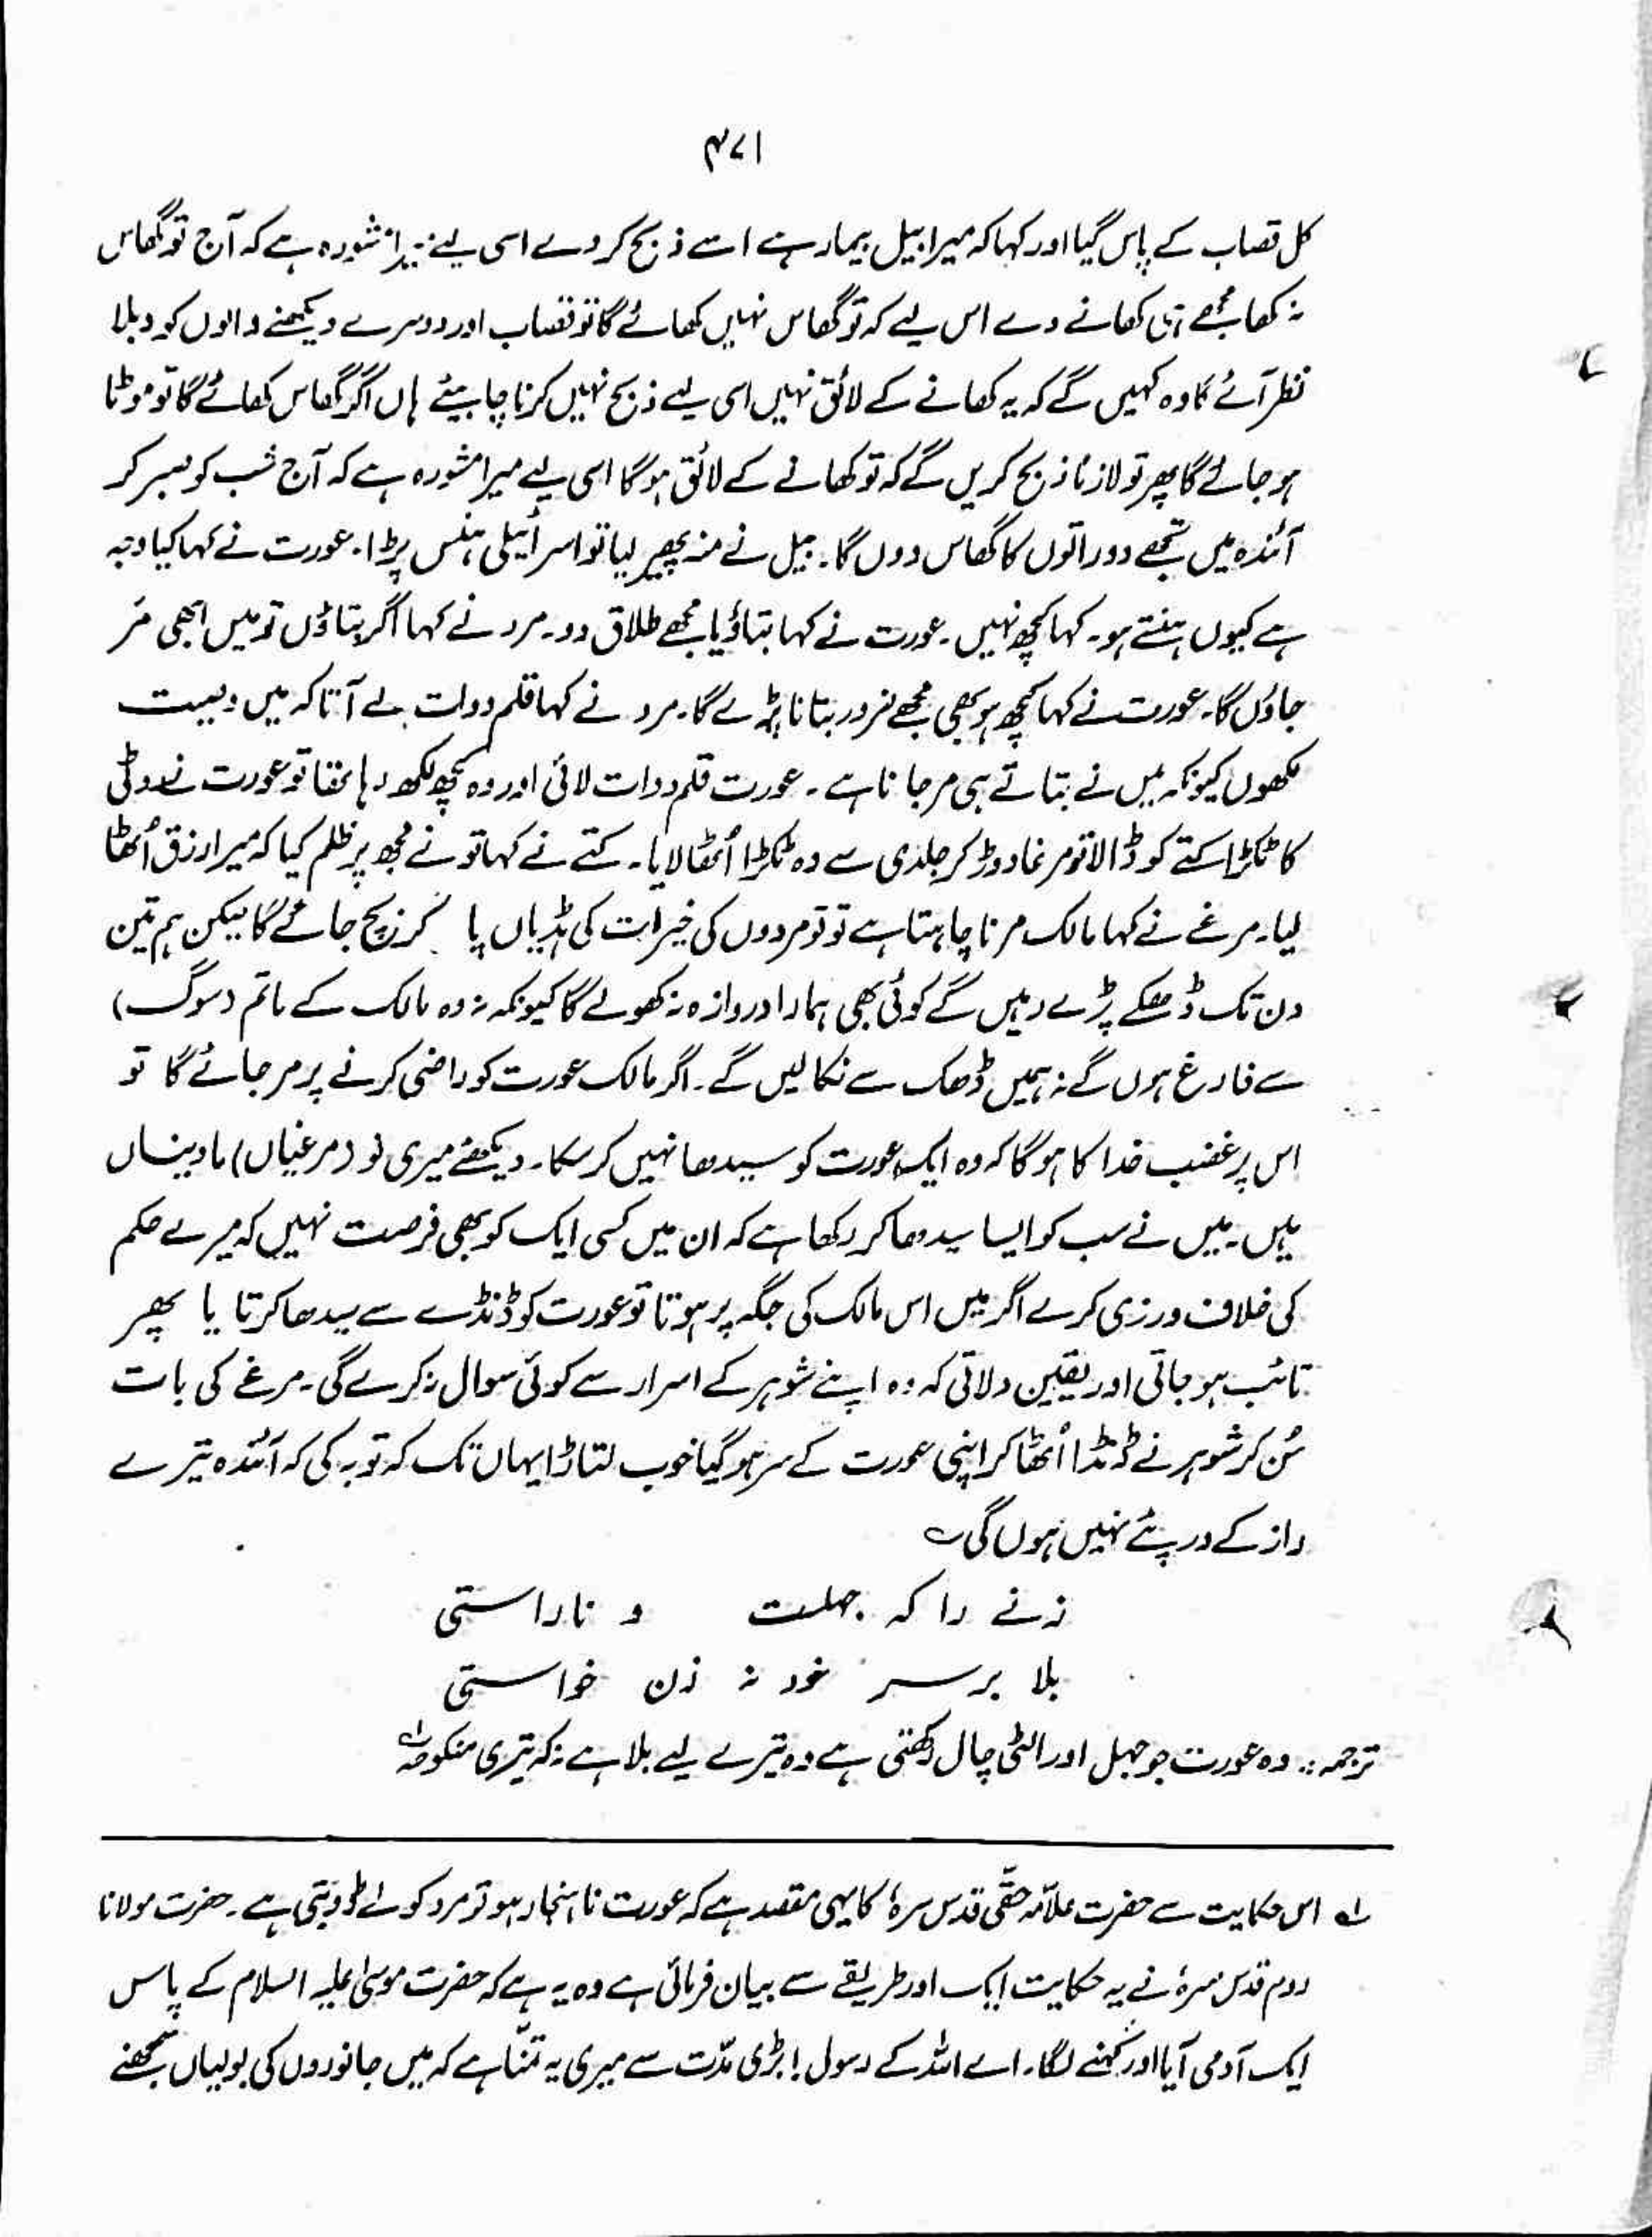 ۴۷۱
کل قصاب کے پاس گیا اور کہا کہ میرا بیل بیمار ہے اسے ذبح کر دے اسی لیے میرا مشورہ ہے کہ آج تو گھاس
نہ کھا مجھے ہی کھانے دے اس لیے کہ تو گھاس نہیں کھائے گا تو قصاب اور دوسرے دیکھنے والوں کو دبلا
نظر آئے گا وہ کہیں گے کہ یہ کھانے کے لائق نہیں اسی لیے ذبح نہیں کرنا چاہیئے ہاں اگر گھاس کھائے گا تو موٹا
ہو جائے گا پھر تو لازماً ذبح کریں گے کہ تو کھانے کے لائق ہوگا اسی لیے میرا مشورہ ہے کہ آج شب کو صبر کر
آئندہ میں تجھے دو راتوں کا گھاس دوں گا۔ بیل نے منہ پھیر لیا تو اسرائیلی ہنس پڑا۔ عورت نے کہا کیا وجہ
ہے کیوں ہنستے ہو۔ کہا کچھ نہیں۔ عورت نے کہا بتاؤ یا مجھے طلاق دو۔ مرد نے کہا اگر بتاؤں تو میں ابھی مَر
جاؤں گا۔ عورت نے کہا کچھ ہو بھی مجھے ضرور بتانا پڑے گا۔ مرد نے کہا قلم دوات لے آ تاکہ میں وصیت
لکھوں کیونکہ میں نے بتاتے ہی مر جانا ہے۔ عورت قلم دوات لائی اور وہ کچھ لکھ رہا تھا تو عورت نے روٹی
کا ٹکڑا کتے کو ڈالا تو مرغا دوڑ کر جلدی سے وہ ٹکڑا اُٹھا لایا۔ کتے نے کہا تو نے مجھ پر ظلم کیا کہ میرا رزق اُٹھا
لیا۔ مرغے نے کہا مالک مرنا چاہتا ہے تو تو مردوں کی خیرات کی ہڈیاں پا کر بچ جائے گا لیکن ہم تین
دن تک ڈھکے پڑے رہیں گے کوئی بھی ہمارا دروازہ نہ کھولے گا کیونکہ نہ وہ مالک کے ماتم (سوگ)
سے فارغ ہوں گے نہ ہمیں ڈھک سے نکالیں گے۔ اگر مالک عورت کو راضی کرنے پر مر جائے گا تو
اس پر غضب خدا کا ہوگا کہ وہ ایک عورت کو سیدھا نہیں کر سکا۔ دیکھئے میری نو (مرغیاں) مادینیاں
ہیں۔ میں نے سب کو ایسا سیدھا کر رکھا ہے کہ ان میں کسی ایک کو بھی فرصت نہیں کہ میرے حکم
کی خلاف ورزی کرے اگر میں اس مالک کی جگہ پر ہوتا تو عورت کو ڈنڈے سے سیدھا کرتا یا پھر
تائب ہو جاتی اور یقین دلاتی کہ وہ اپنے شوہر کے اسرار سے کوئی سوال نہ کرے گی۔ مرغے کی بات
سُن کر شوہر نے ڈنڈا اُٹھا کر اپنی عورت کے سر ہو گیا خوب لتاڑا یہاں تک کہ توبہ کی کہ آئندہ تیرے
راز کے درپئے نہیں ہوں گی ؎
زنے را کہ جہلست و ناراستی
بلا بر سر خود نہ زن خواستی
ترجمہ :۔ وہ عورت جو جہل اور الٹی چال رکھتی ہے وہ تیرے لیے بلا ہے نہ کہ تیری منکوحہ ؎۱
؎۱ اس حکایت سے حضرت علامہ حقّی قدس سرہٗ کا یہی مقصد ہے کہ عورت ناہنجار ہو تو مرد کو لے ڈوبتی ہے۔ حضرت مولانا
روم قدس سرہٗ نے یہ حکایت ایک اور طریقے سے بیان فرمائی ہے وہ یہ ہے کہ حضرت موسیٰ علیہ السلام کے پاس
ایک آدمی آیا اور کہنے لگا۔ اے اللہ کے رسول! بڑی مدّت سے میری یہ تمنّا ہے کہ میں جانوروں کی بولیاں سمجھنے